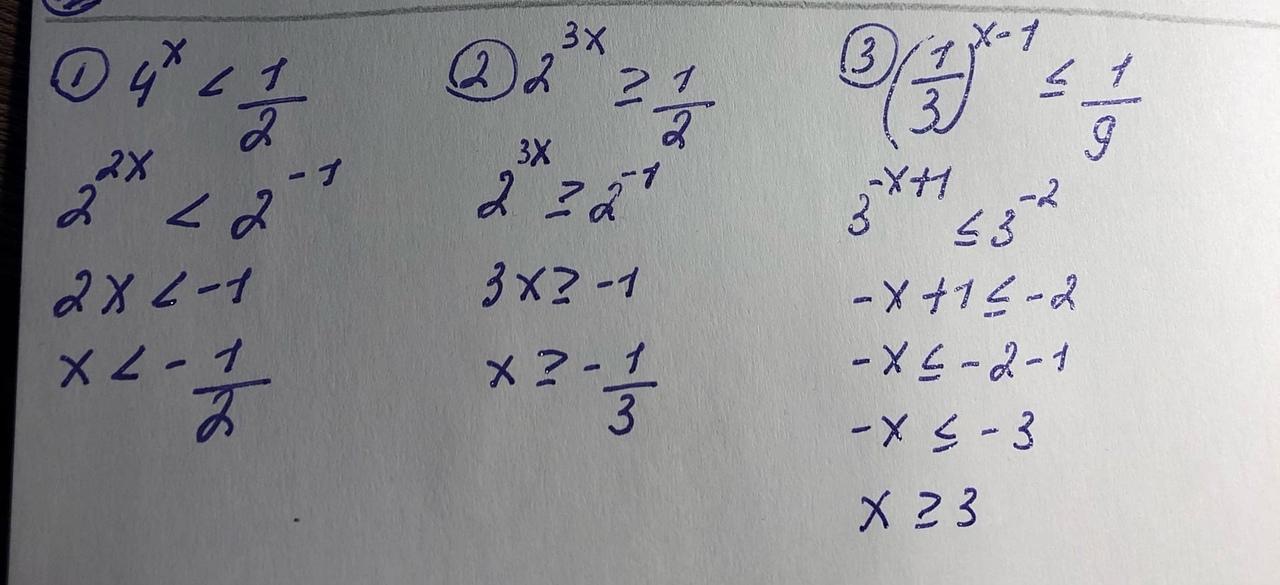 ① 4^x < 1/2
2^{2x} < 2^{-1}
2x < -1
x < -1/2
② 2^{3x} ≥ 1/2
2^{3x} ≥ 2^{-1}
3x ≥ -1
x ≥ -1/3
③ (1/3)^{x-1} ≤ 1/9
3^{-x+1} ≤ 3^{-2}
-x+1 ≤ -2
-x ≤ -2-1
-x ≤ -3
x ≥ 3